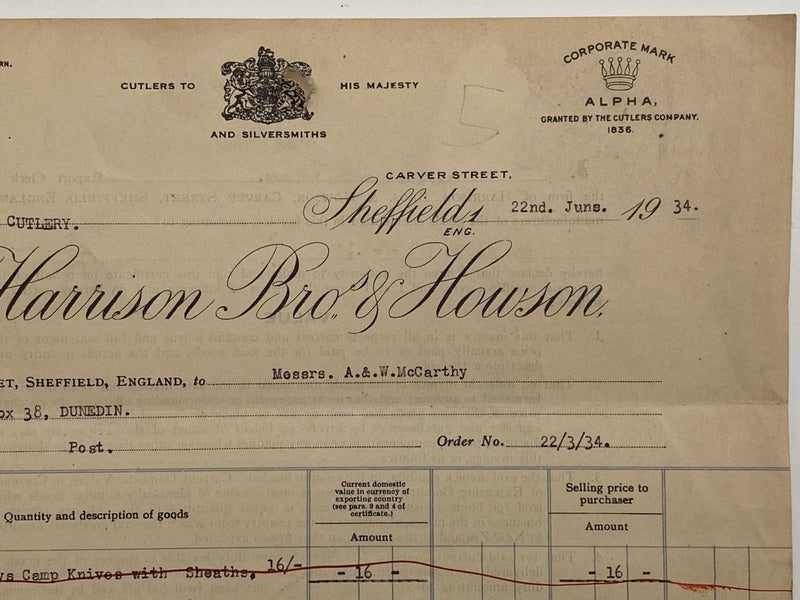 RN.
CUTLERS TO HIS MAJESTY
AND SILVERSMITHS
CORPORATE MARK
ALPHA,
GRANTED BY THE CUTLERS COMPANY.
1836.
5
CARVER STREET,
CUTLERY. Sheffield, 22nd. June. 19 34.
ENG.
Harrison Bros. & Howson.
ET, SHEFFIELD, ENGLAND, to Messrs. A.&.W.McCarthy
ox 38, DUNEDIN.
Post. Order No. 22/3/34.
Quantity and description of goods
Current domestic
value in currency of
exporting country
(see pars. 3 and 4 of
certificate.)
Amount
Selling price to
purchaser
Amount
ys Camp Knives with Sheaths, 16/- - 16 - - 16 -